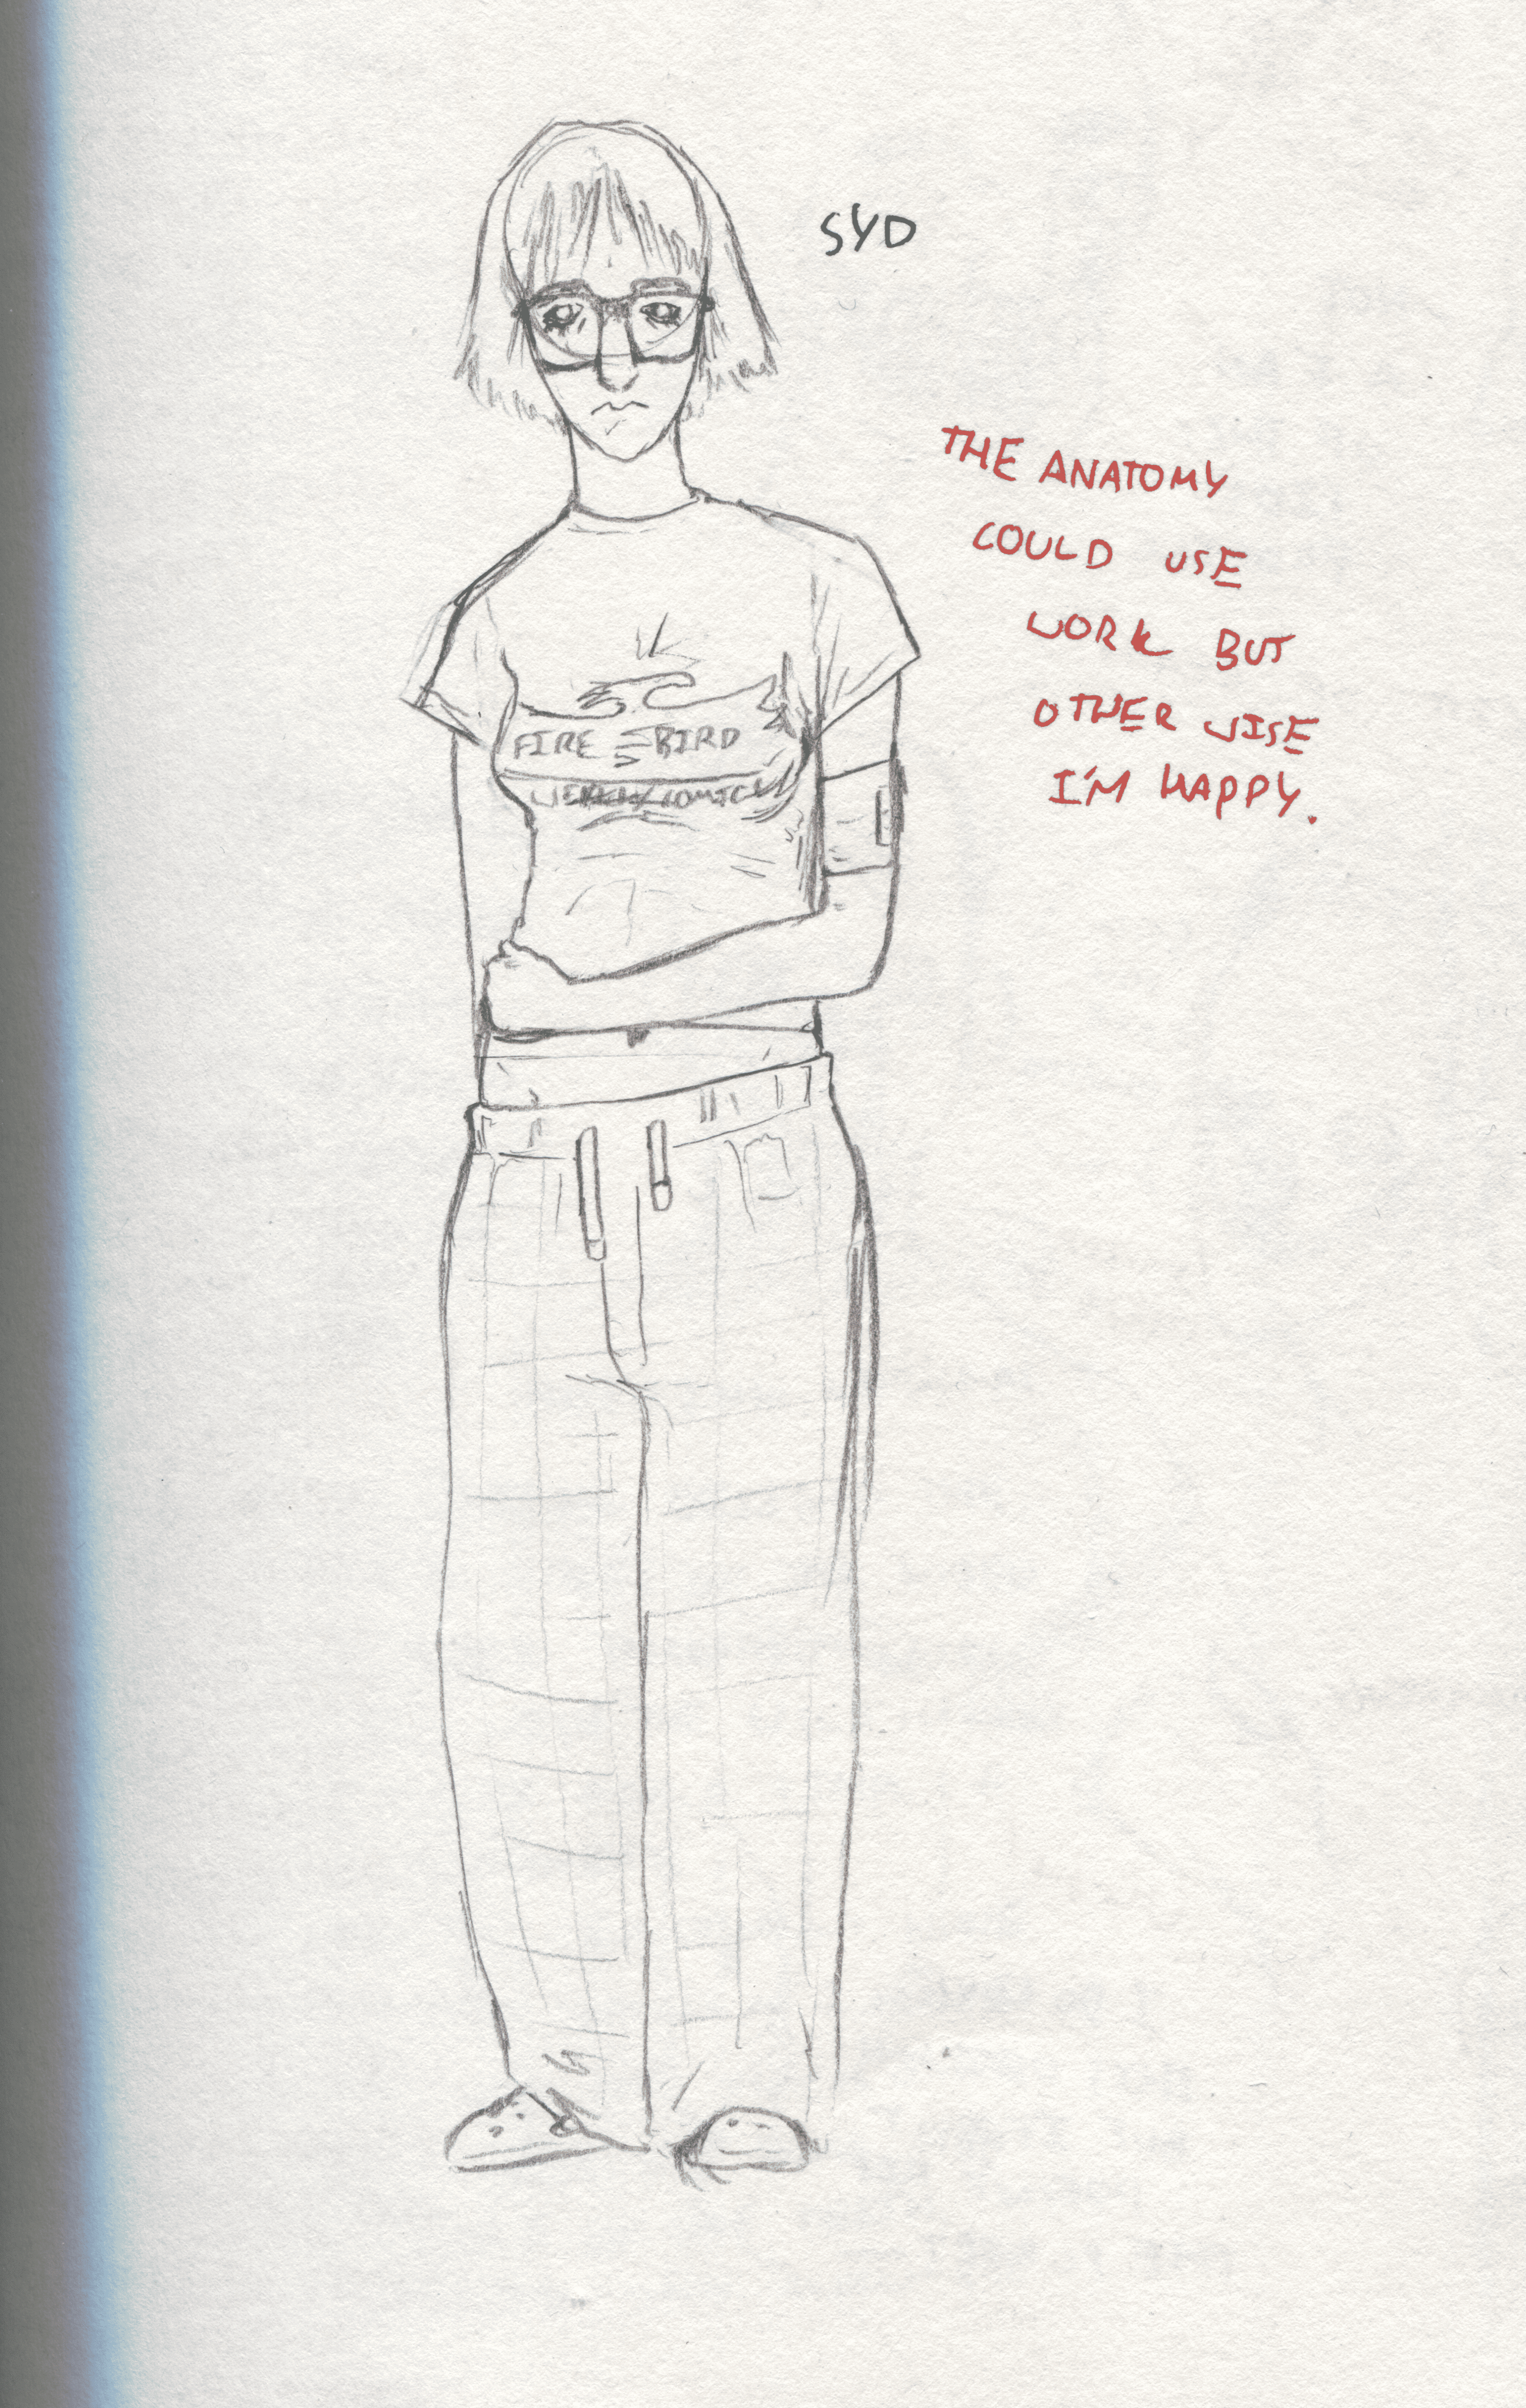 SYD
THE ANATOMY
COULD USE
WORK BUT
OTHER WISE
I'M HAPPY.
FIRE BIRD